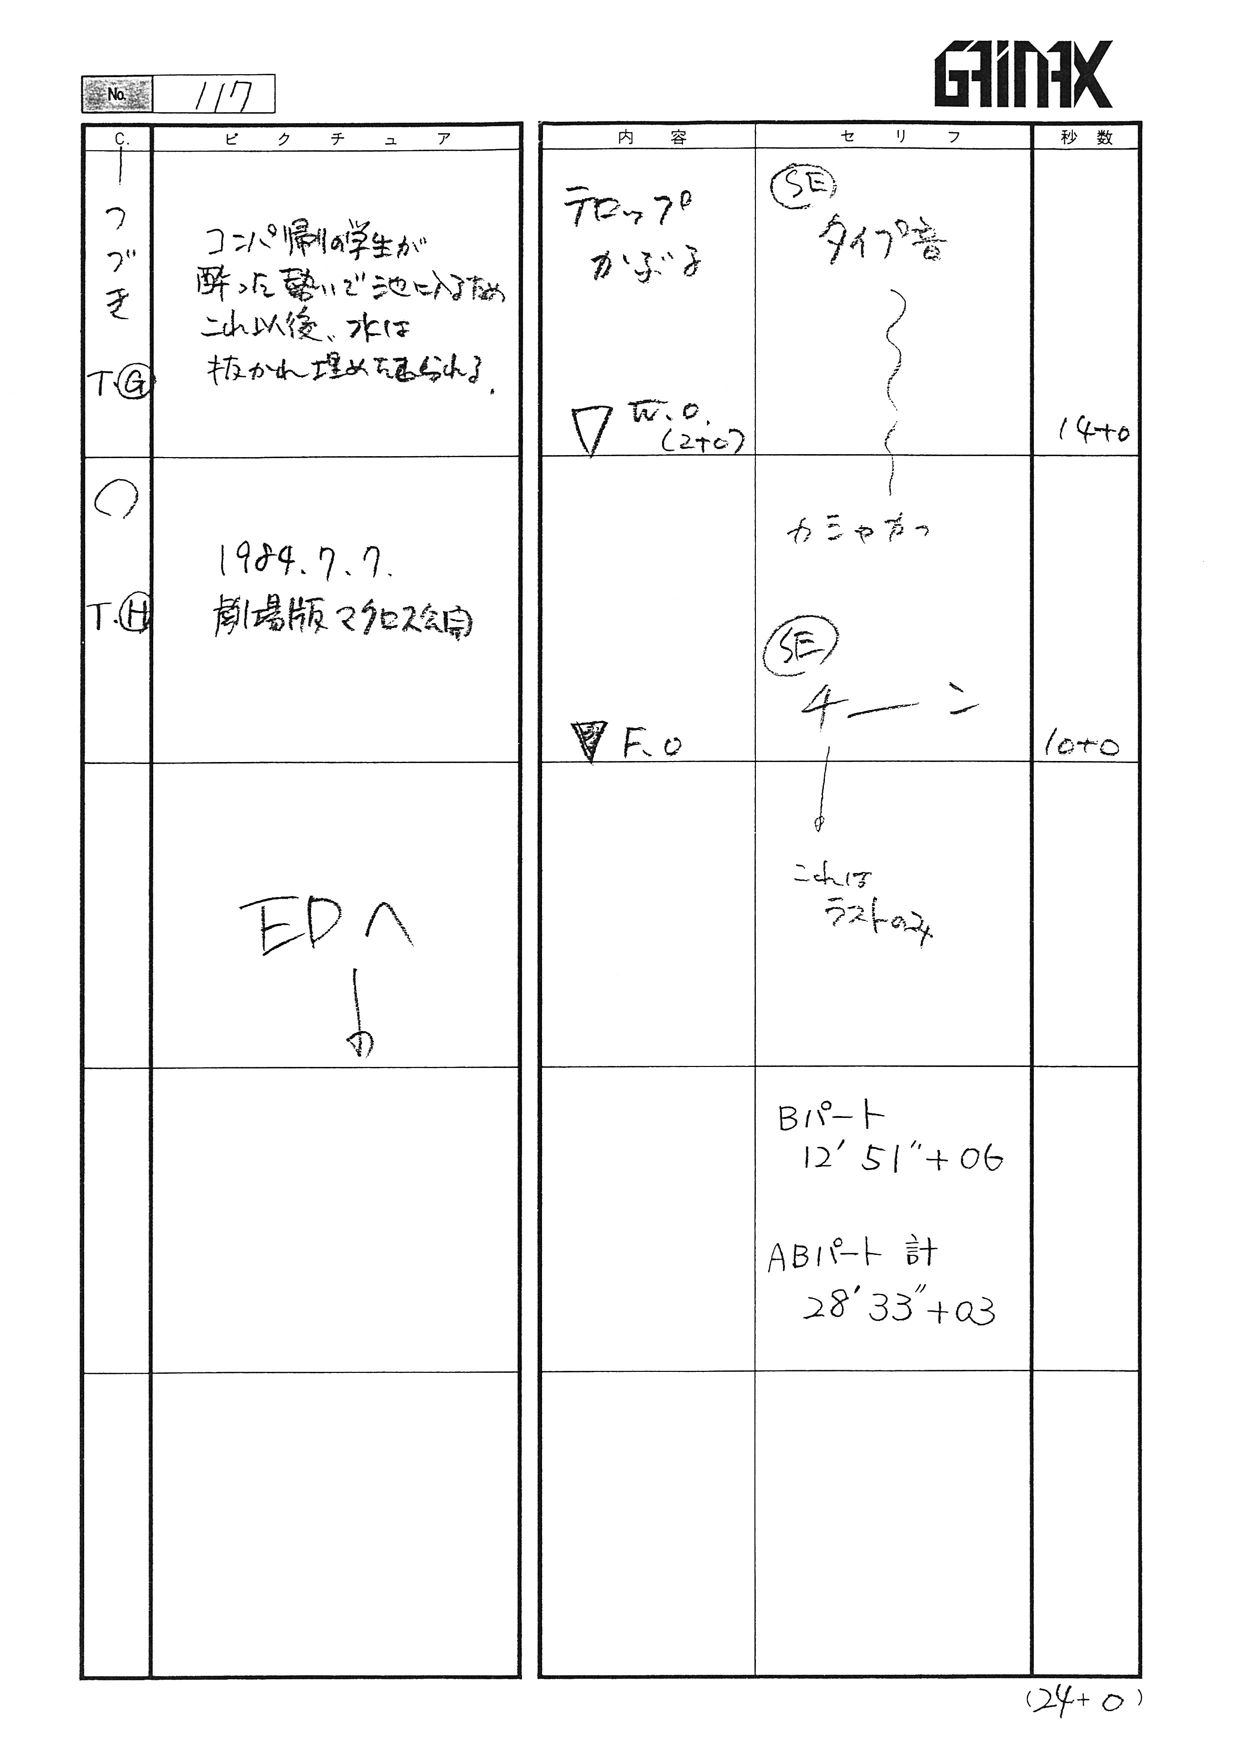 GAINAX
No. 117
C.
ピクチュア
内容
セリフ
秒数
つづき
T.Ⓖ
コンパ帰りの学生が
酔った勢いで池に入るため
これ以後、水は
抜かれ埋め立てられる。
テロップ
かぶる
W.O.
(2+0)
SE
タイプ音
14+0
T.Ⓗ
1984.7.7.
劇場版マクロス公開
カシャカっ
SE
チーン
F.O
10+0
EDへ
これは
ラストのみ
Bパート
12′51″+06
ABパート 計
28′33″+03
(24+0)